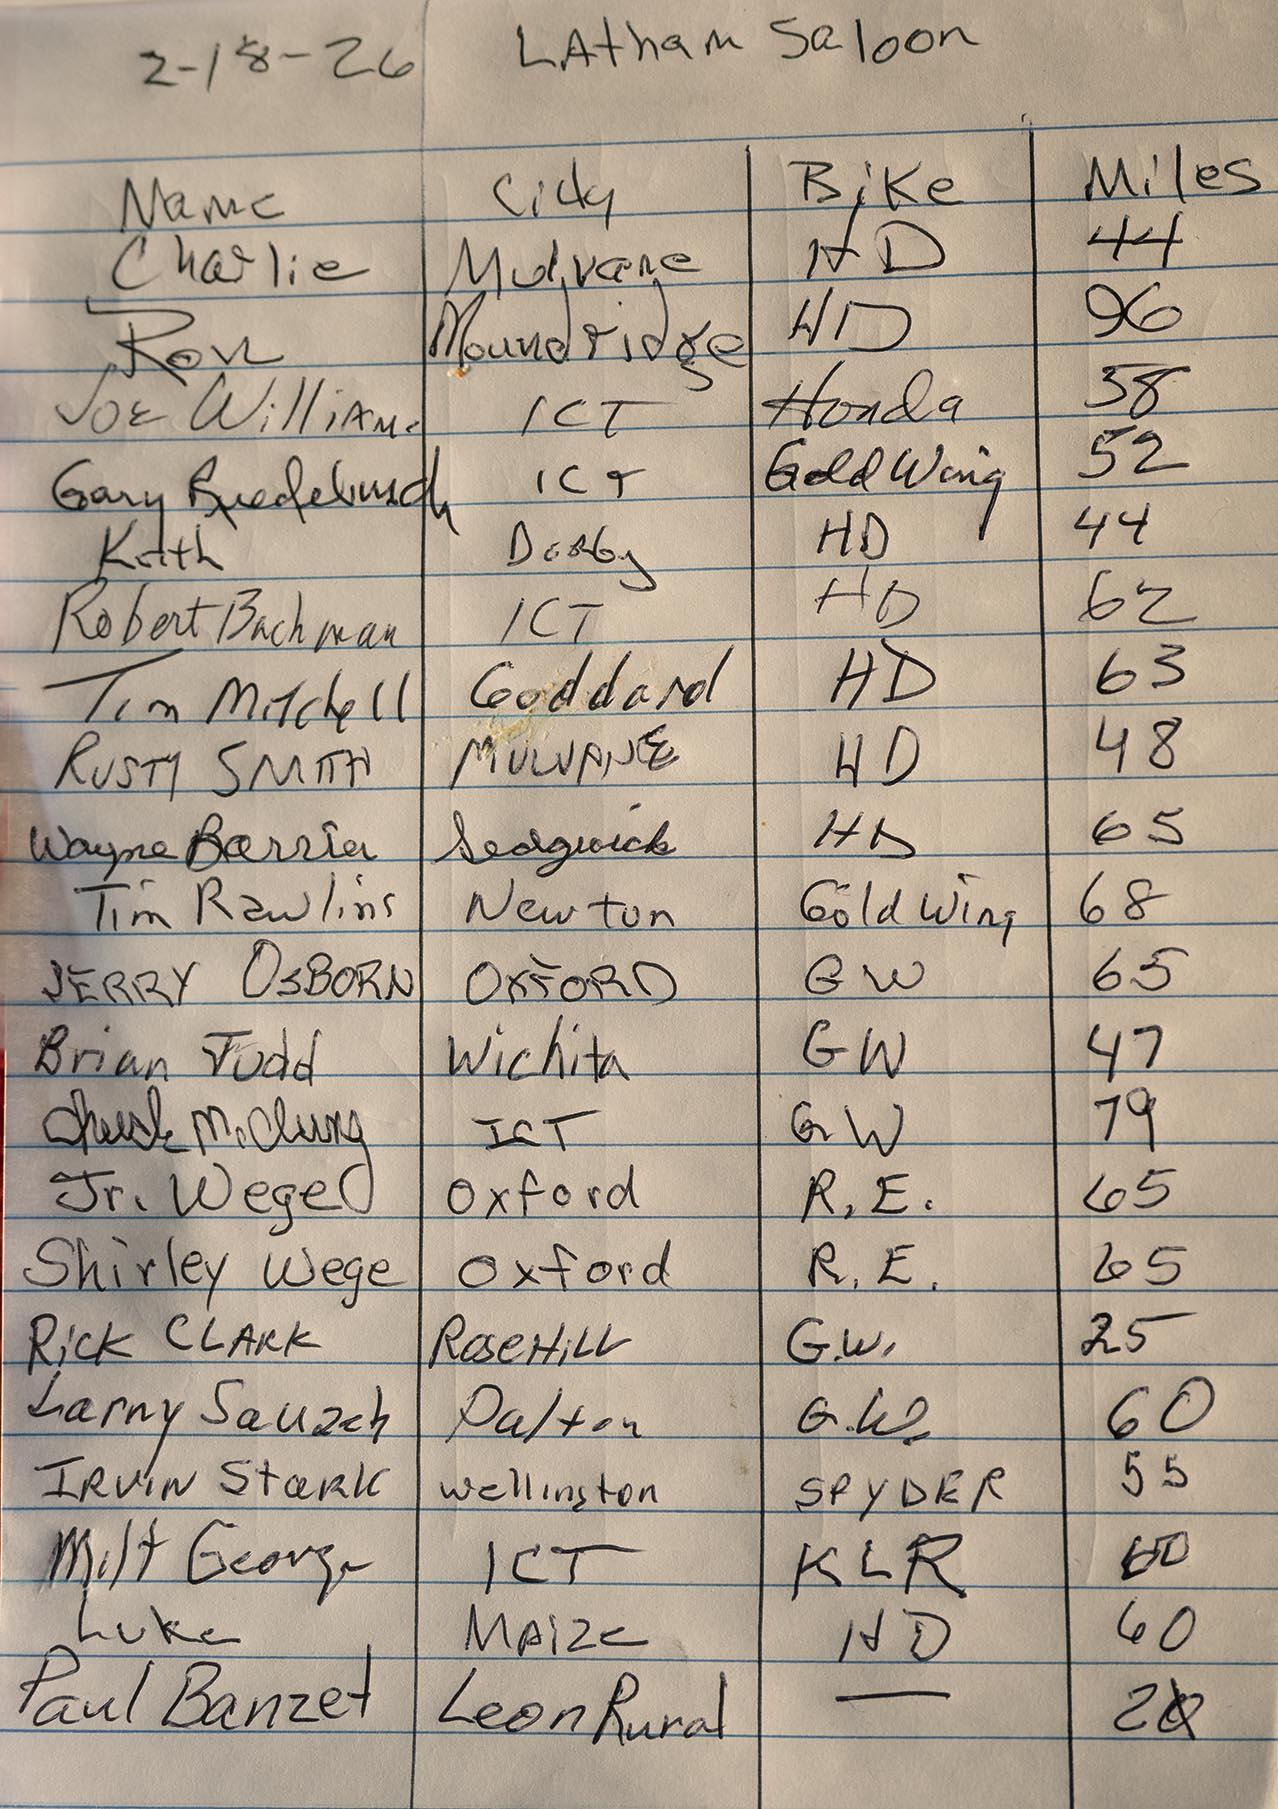 2-18-26 LAtham Saloon
Name City Bike Miles
Charlie Mulvane HD 44
Ron Moundridge HD 96
JOE WilliAms ICT Honda 58
Gary Ruedebusch ICT Gold Wing 52
Keith Derby HD 44
Robert Bachman ICT HD 62
Tim Mitchell Goddard HD 63
RUSTY SMITH MULVANE HD 48
Wayne Barrier Sedgwick HD 65
Tim Rawlins Newton Gold Wing 68
JERRY OSBORN OXFORD GW 65
Brian Judd Wichita GW 47
Chuck McClung ICT GW 79
Jr. Wege Oxford R.E. 65
Shirley Wege Oxford R.E. 65
Rick CLARK RoseHill G.W. 25
Larry Sauzek Dalton G.W. 60
IRVIN StaRK Wellington SPYDER 55
Milt George ICT KLR 60
Luke MAize HD 60
Paul Banzet Leon Rural —